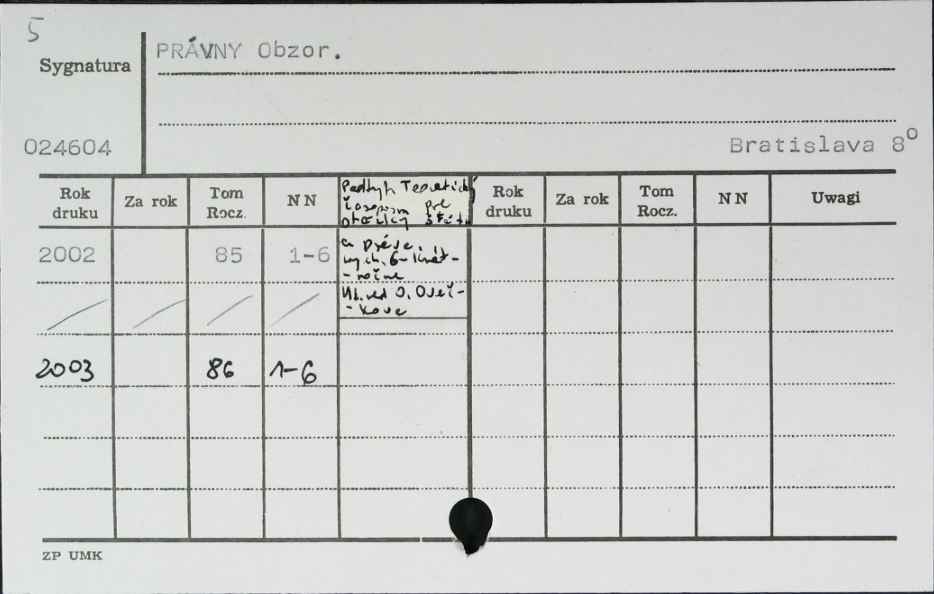 5
Sygnatura
PRÁVNY Obzor.
024604
Bratislava 8º
Rok druku
Za rok
Tom Rocz.
NN
Podtyt: Teoretický
časopis pre
otázky štátu
a práva.
vych. 6-krát-
-ročne
Hl. red O.
Rok druku
Za rok
Tom Rocz.
NN
Uwagi
2002 85 1-6
2003 86 1-6
ZP UMK